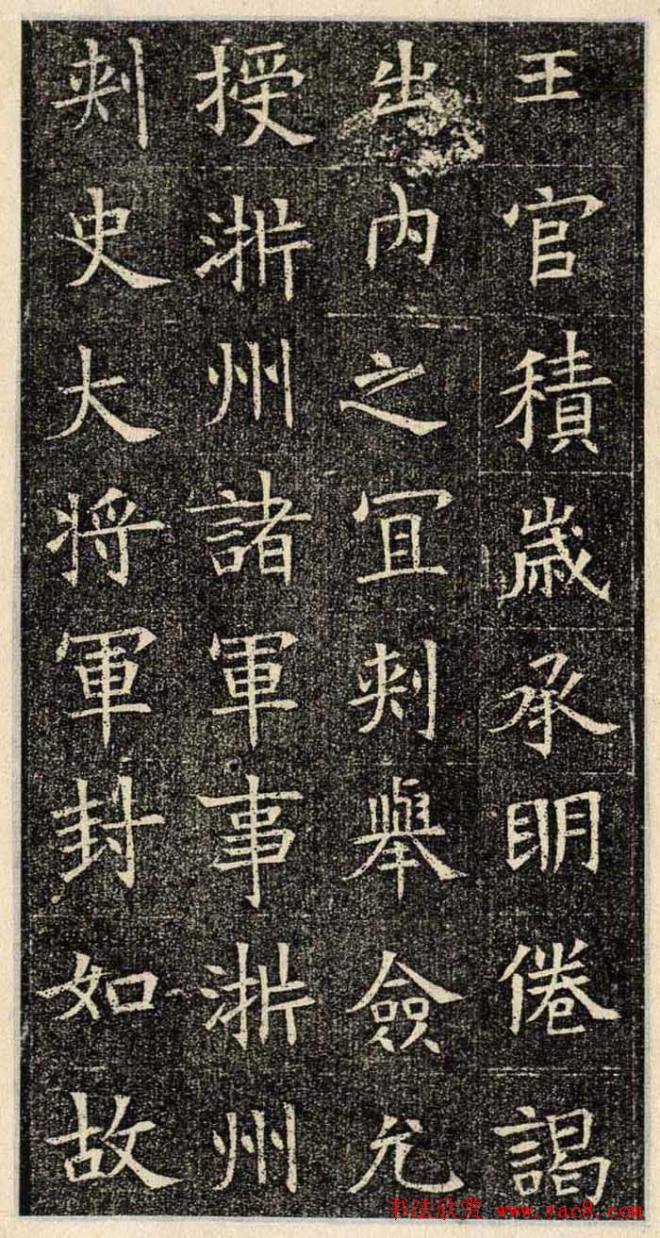 王官積歲承明倦謁
出內之宜刺舉僉允
授淅州諸軍事淅州
刺史大將軍封如故
书法欣赏 www.yac8.com